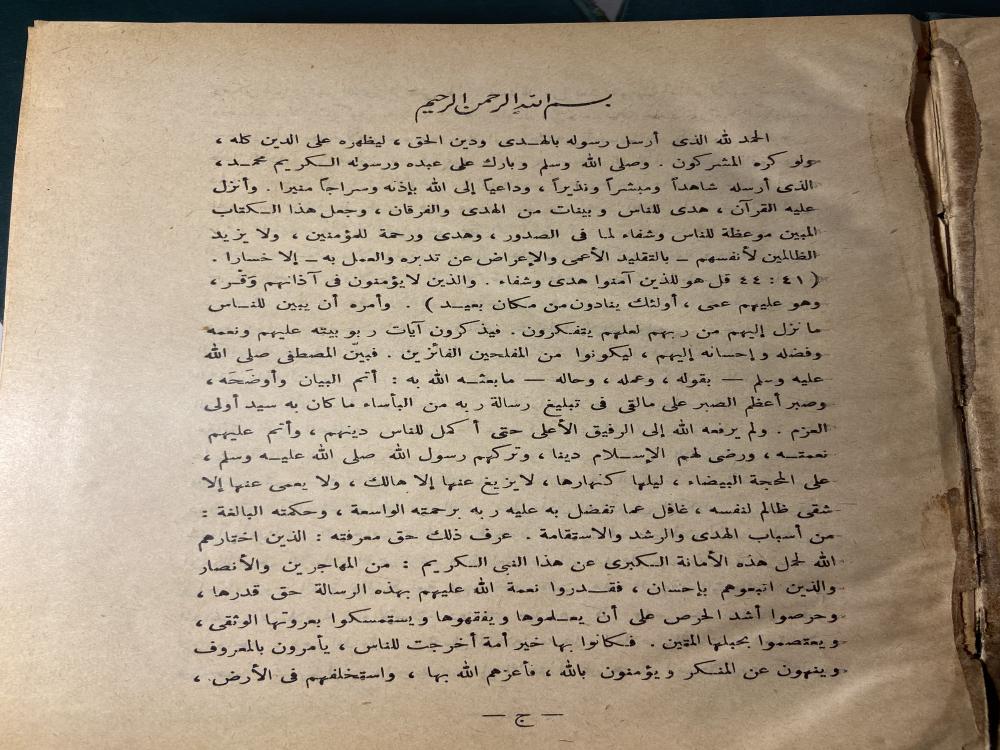 بسم الله الرحمن الرحيم
الحمد لله الذى أرسل رسوله بالهدى ودين الحق ، ليظهره على الدين كله ،
ولو كره المشركون . وصلى الله وسلم وبارك على عبده ورسوله الكريم محمد ،
الذى أرسله شاهداً ومبشراً ونذيراً ، وداعياً إلى الله بإذنه وسراجاً منيرا . وأنزل
عليه القرآن ، هدى للناس وبينات من الهدى والفرقان ، وجعل هذا الكتاب
المبين موعظة للناس وشفاء لما فى الصدور ، وهدى ورحمة للمؤمنين ، ولا يزيد
الظالمين لأنفسهم – بالتقليد الأعمى والإعراض عن تدبره والعمل به – إلا خسارا .
( ٤١ : ٤٤ قل هو للذين آمنوا هدى وشفاء . والذين لا يؤمنون فى آذانهم وَقْر ،
وهو عليهم عمى ، أولئك ينادون من مكان بعيد ) . وأمره أن يبين للناس
ما نزل إليهم من ربهم لعلهم يتفكرون . فيذكرون آيات ربوبيته عليهم ونعمه
وفضله وإحسانه إليهم ، ليكونوا من المفلحين الفائزين . فبيّن المصطفى صلى الله
عليه وسلم — بقوله ، وعمله ، وحاله — ما بعثه الله به : أتم البيان وأوضَحَه ،
وصبر أعظم الصبر على مالقى فى تبليغ رسالة ربه من البأساء ما كان به سيد أولى
العزم . ولم يرفعه الله إلى الرفيق الأعلى حتى أكمل للناس دينهم ، وأتم عليهم
نعمته ، ورضى لهم الإسلام دينا ، وتركهم رسول الله صلى الله عليه وسلم ،
على المحجة البيضاء ، ليلها كنهارها ، لا يزيغ عنها إلا هالك ، ولا يعمى عنها إلا
شقى ظالم لنفسه ، غافل عما تفضل به عليه ربه برحمته الواسعة ، وحكمته البالغة :
من أسباب الهدى والرشد والاستقامة . عرف ذلك حق معرفته : الذين اختارهم
الله لحمل هذه الأمانة الكبرى عن هذا النبى الكريم : من المهاجرين والأنصار
والذين اتبعوهم بإحسان ، فقدروا نعمة الله عليهم بهذه الرسالة حق قدرها ،
وحرصوا أشد الحرص على أن يعلموها ويفقهوها ويستمسكوا بعروتها الوثقى ،
ويعتصموا بحبلها المتين . فكانوا بها خير أمة أخرجت للناس ، يأمرون بالمعروف
وينهون عن المنكر ويؤمنون بالله ، فأعزهم الله بها ، واستخلفهم فى الأرض ،
— ج —